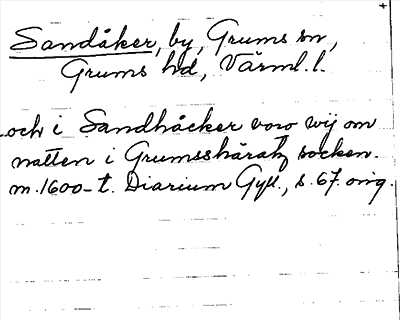 Sandåker, by, Grums sn,
Grums hd, Värml. l.
..och i Sandhåcker voro wij om
natten i Grumsshäratz socken.
m. 1600-t. Diarium Gyll., s. 67. orig.